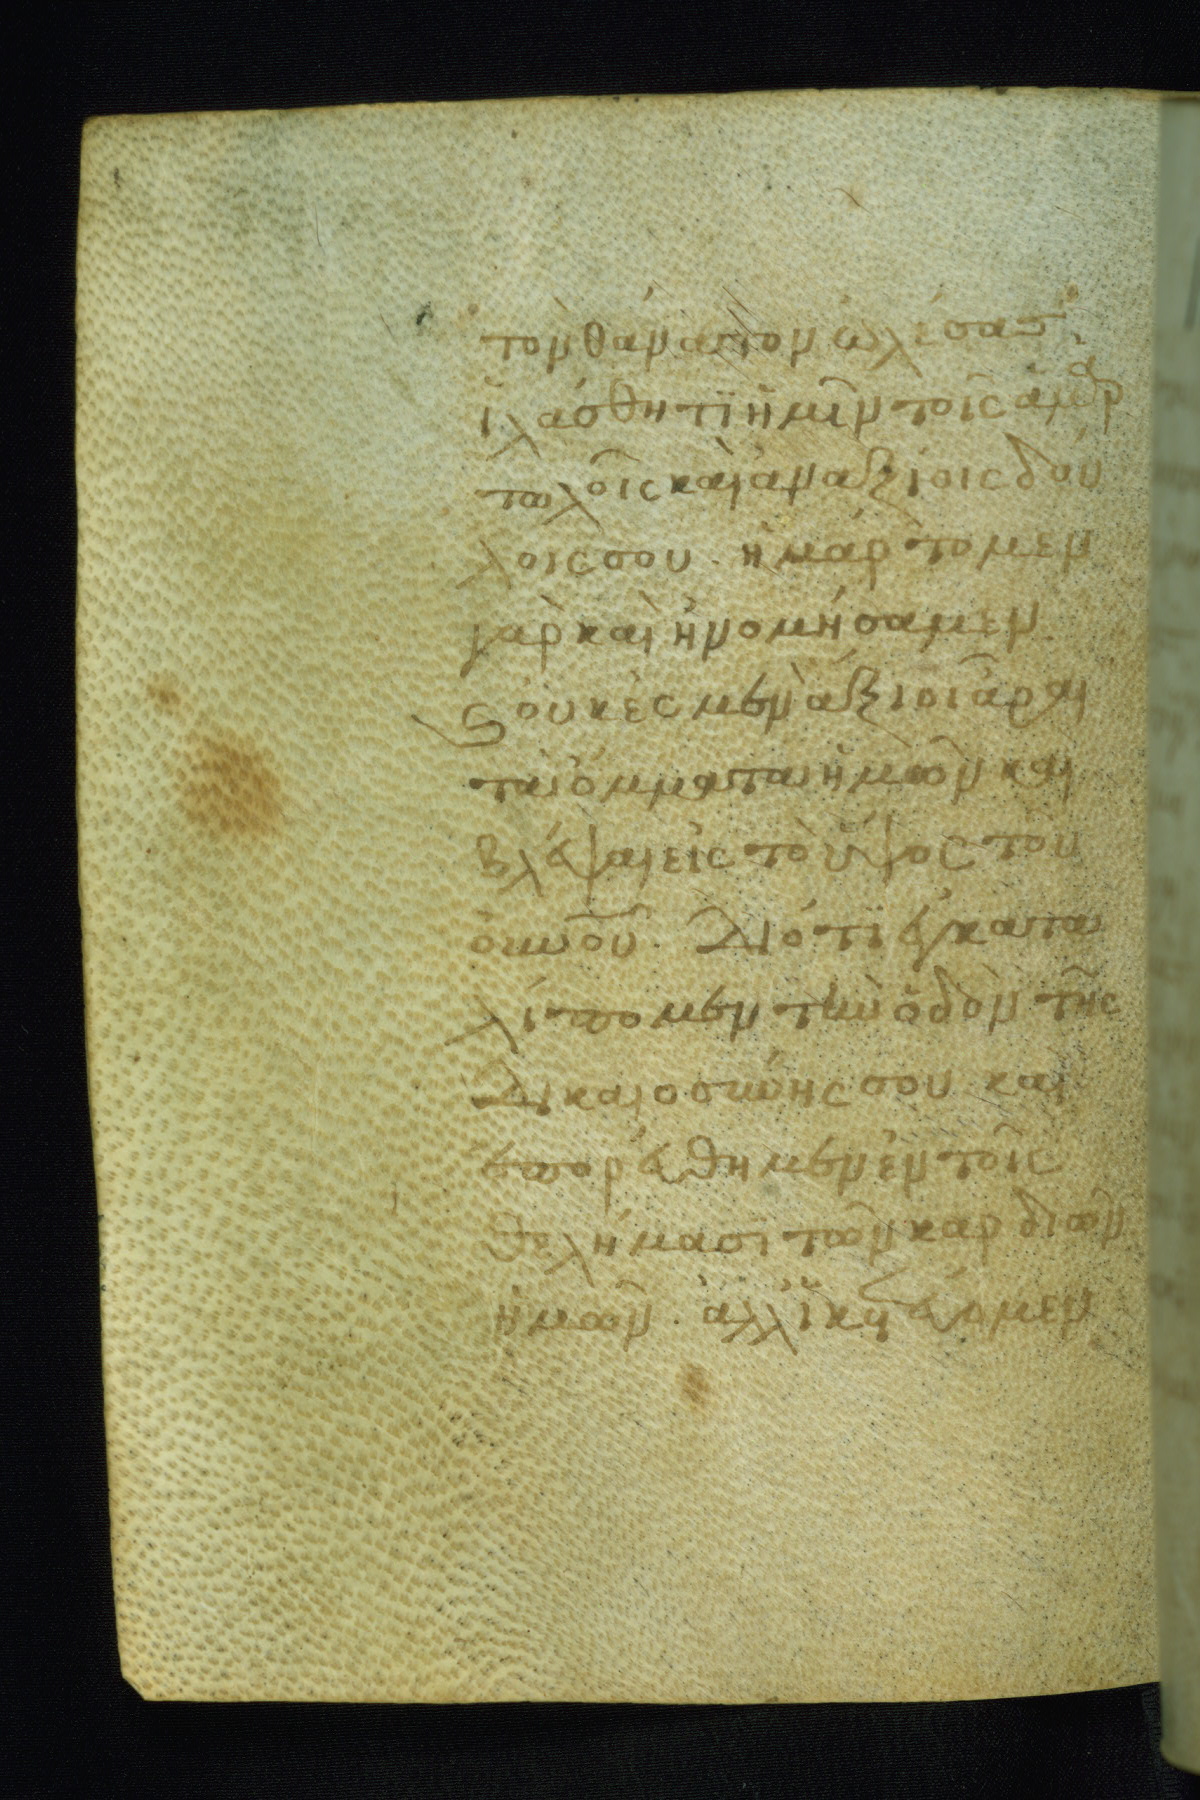 τὸν θάνατον ὠλέσας
ἱλάσθητι ἡμῖν τοῖς ἁμαρ
τωλοῖς καὶ ἀναξίοις δού
λοις σου. ἡμάρτομεν
γὰρ καὶ ἠνομήσαμεν
ϛ οὐκ ἐσμὲν ἄξιοι ἆραι
τὰ ὄμματα ἡμῶν καὶ
βλέψαι εἰς τὸ ὕψος τοῦ
οὐνοῦ. Διότι ἐκατε
λίπομεν τὴν ὁδὸν τῆς
Δικαιοσύνης σου καὶ
ἐπορεύθημεν ἐν τοῖς
θελήμασι τῶν καρδιῶν
ἡμῶν. ἀλλ' ἱκετεύομεν